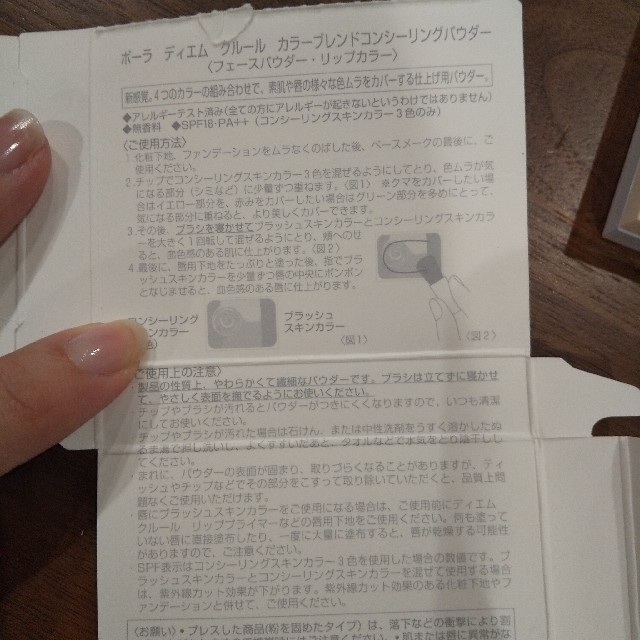 ポーラ ディエム クルール カラーブレンドコンシーリングパウダー
〈フェースパウダー・リップカラー〉
新感覚。4つのカラーの組み合わせで、素肌や唇の様々な色ムラをカバーする仕上げ用パウダー。
◆アレルギーテスト済み(全ての方にアレルギーが起きないというわけではありません)
◆無香料 ◆SPF18・PA++(コンシーリングスキンカラー3色のみ)
〈ご使用方法〉
1. 化粧下地、ファンデーションをムラなくのばした後、ベースメークの最後に、ご
使用ください。
2. チップでコンシーリングスキンカラー3色を混ぜるようにしてとり、色ムラが気
になる部分(シミなど)に少量ずつ重ねます。(図1) ※クマをカバーしたい場
合はイエロー部分を、赤みをカバーしたい場合はグリーン部分を多めにとって、
気になる部分に重ねると、より美しくカバーできます。
3. その後、ブラシを寝かせてブラッシュスキンカラーとコンシーリングスキンカラ
ーを大きく1回転して混ぜるようにとり、頬へのせ
ると、血色感のある肌に仕上がります。(図2)
4. 最後に、唇用下地をたっぷりと塗った後、指でブラ
ッシュスキンカラーを少量ずつ唇の中央にポンポン
となじませると、血色感のある唇に仕上がります。
コンシーリング
スキンカラー
ブラッシュ
スキンカラー
(図1)
(図2)
ご使用上の注意〉
製品の性質上、やわらかくて繊細なパウダーです。ブラシは立てずに寝かせ
て、やさしく表面を撫でるようにお使いください。
チップやブラシが汚れるとパウダーがつきにくくなりますので、いつも清潔
にしてお使いください。
チップやブラシが汚れた場合は石けん、または中性洗剤をうすく溶かしたぬ
るま湯で押し洗いし、よくすすいだあと、タオルなどで水気をとり陰干しし
てください。
まれに、パウダーの表面が固まり、取りづらくなることがありますが、ティ
ッシュやチップなどでその部分をこすって取り除いていただくと、品質上問
題なくご使用いただけます。
唇にブラッシュスキンカラーをご使用になる場合は、ご使用前にディエム
クルール リッププライマーなどの唇用下地をご使用ください。何も塗って
いない唇に直接塗布したり、一度に大量に塗布すると、唇が乾燥する可能性
がありますので、ご注意ください。
SPF表示はコンシーリングスキンカラー3色を使用した場合の数値です。ブ
ラッシュスキンカラーとコンシーリングスキンカラーを混ぜて使用する場合
は、紫外線カット効果が下がります。紫外線カット効果のある化粧下地やフ
ァンデーションと併せて、ご使用ください。
〈お願い〉・プレスした商品(粉を固めたタイプ)は、落下などの衝撃により割